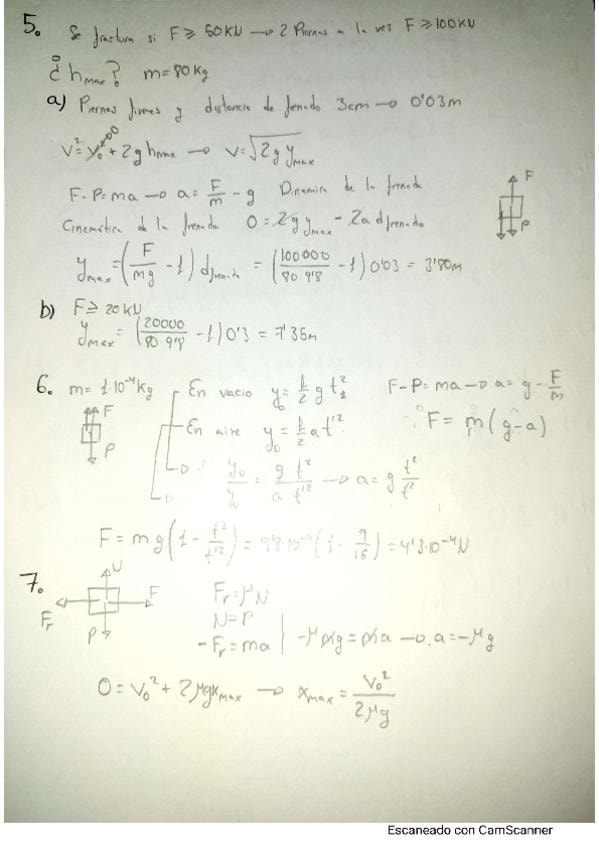 5. Se fractura si F ≥ 50KN → 2 Piernas a la vez F ≥ 100KN
¿hmax? m = 80Kg
a) Piernas firmes y distancia de frenado 3cm → 0'03m
V² = V₀² + 2ghmax → V = √2gymax
F-P = ma → a = F/m - g Dinamica de la frenada
F
P
Cinematica de la frenada 0 = 2gymax - 2adfrenado
ymax = (F/mg - 1) dfrenada = (100000/80 9'8 - 1) 0'03 = 3'80m
b) F ≥ 20KN
ymax = (20000/80 9'8 - 1) 0'3 = 7'35m
6. m = 1·10⁻⁴Kg
En vacio y₀ = 1/2 g t² F-P = ma → a = g - F/m
F
P
En aire y₀ = 1/2 a t'² F = m(g-a)
y₀/y₀ = g t²/a t'² → a = g t²/t'²
F = mg(1 - t²/t'²) = 9'8·10⁻⁴(1 - 9/16) = 4'3·10⁻⁴N
7.
N
F
Fr
P
Fr = μN
N = P
-Fr = ma | -μmg = ma → a = -μg
0 = V₀² + 2μgxmax → xmax = V₀²/2μg
Escaneado con CamScanner